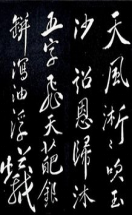 天風淅〻吹玉
沙詔恩歸沐
五字飛天葩銀
瀉油浮